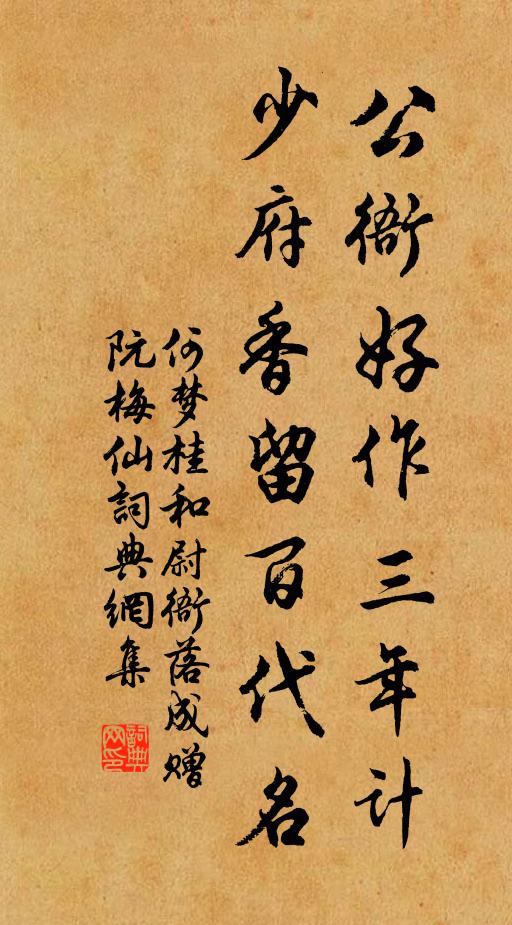 公衙好作三年计
少府香留百代名
何梦桂和尉衙落成赠
阮梅仙詞典網集
詞典网印